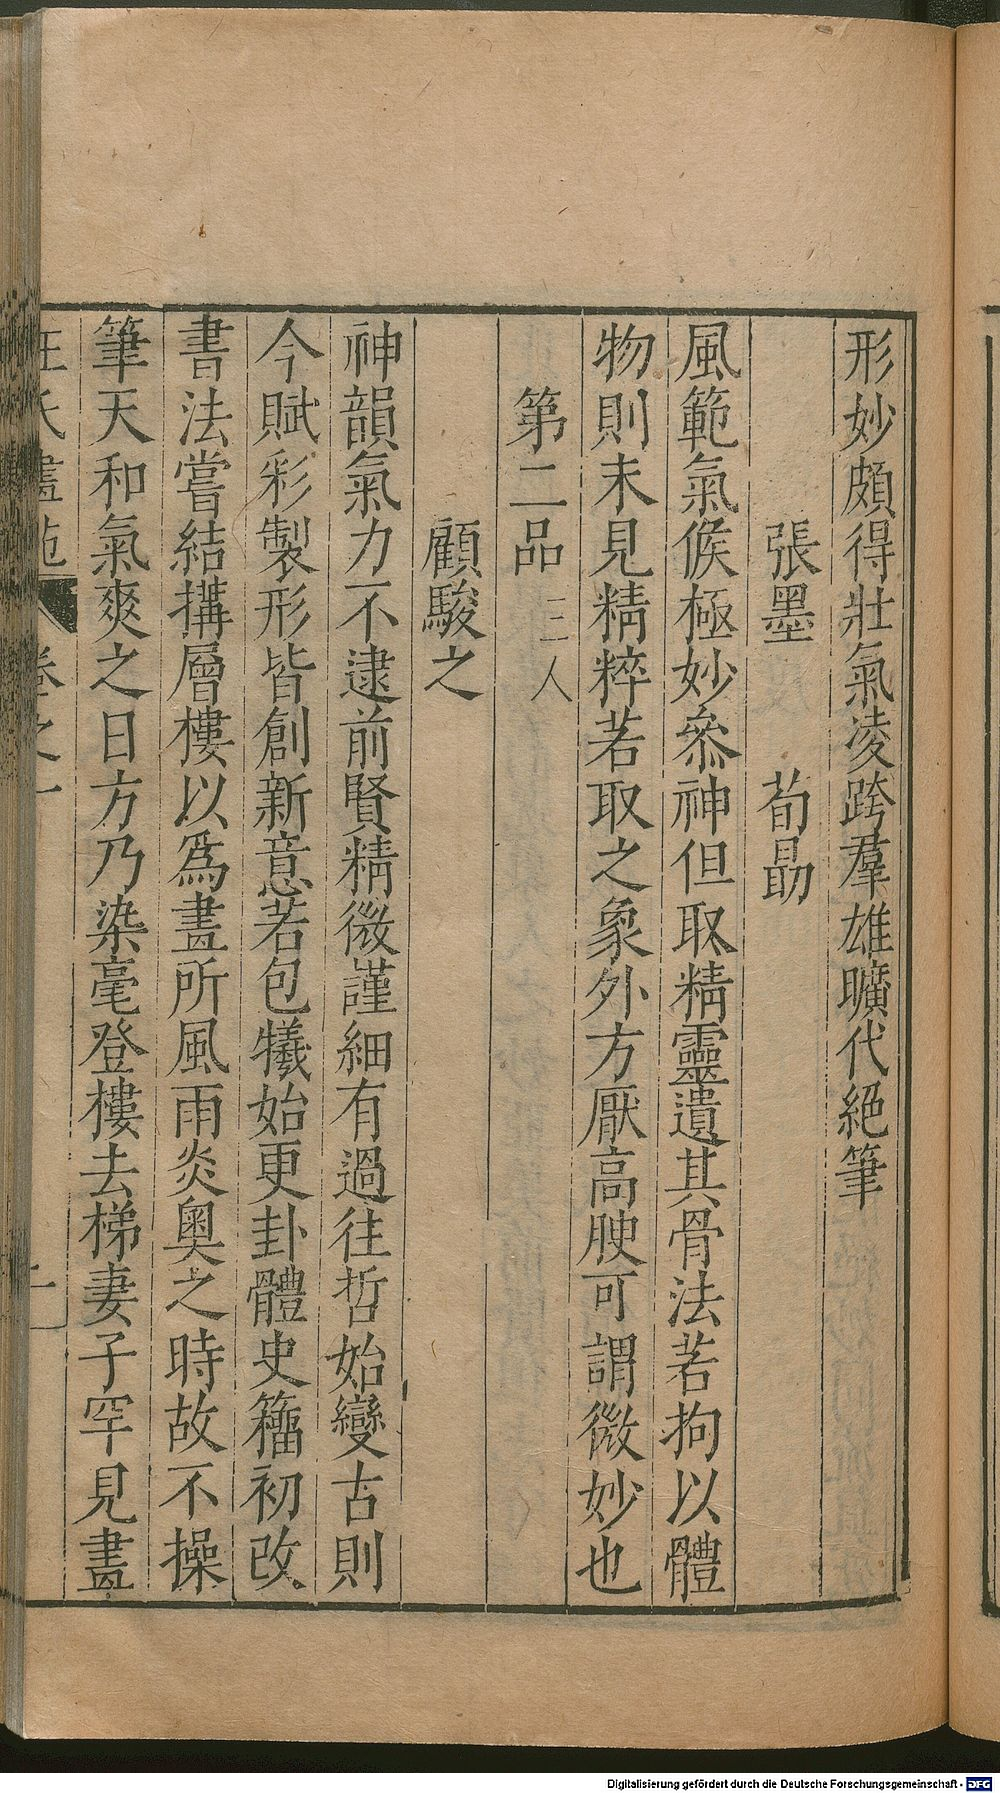 形妙頗得壯氣凌跨羣雄曠代絕筆
張墨　荀勗
風範氣候極妙叅神但取精靈遺其骨法若拘以體
物則未見精粹若取之象外方厭高腴可謂微妙也
第二品 三人
顧駿之
神韻氣力不逮前賢精微謹細有過往哲始變古則
今賦彩製形皆創新意若包犧始更卦體史籀初改
書法嘗結搆層樓以爲畫所風雨炎奧之時故不操
筆天和氣爽之日方乃染毫登樓去梯妻子罕見畫
王氏畫苑 卷之一
Digitalisierung gefördert durch die Deutsche Forschungsgemeinschaft - DFG